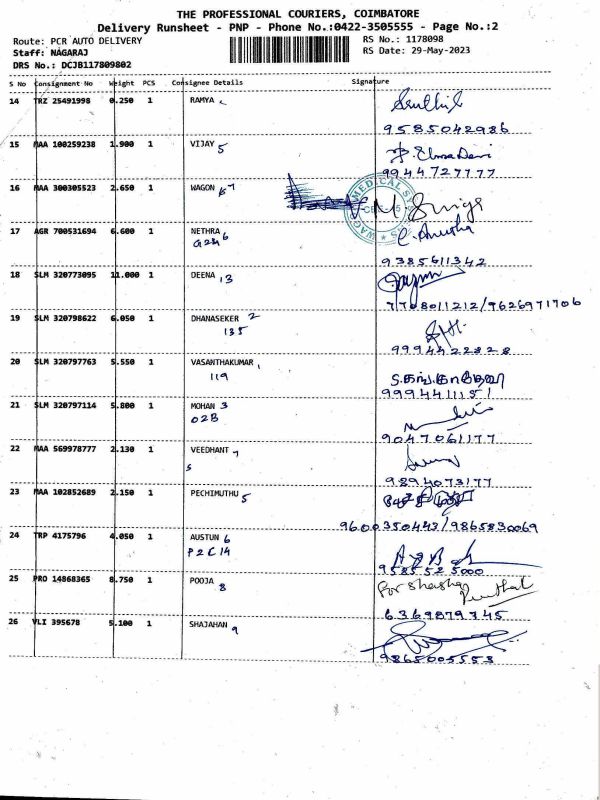 THE PROFESSIONAL COURIERS, COIMBATORE
Delivery Runsheet - PNP - Phone No.:0422-3505555 - Page No.:2
Route: PCR AUTO DELIVERY RS No.: 1178098
Staff: NAGARAJ RS Date: 29-May-2023
DRS No.: DCJB117809802
S No Consignment No Weight PCS Consignee Details Signature
14 TRZ 25491998 0.250 1 RAMYA
9585042986
15 MAA 100259238 1.900 1 VIJAY 5
9944727777
16 MAA 300305523 2.650 1 WAGON
17 AGR 700531694 6.600 1 NETHRA
6
9385611342
18 SLM 320773095 11.000 1 DEENA 13
7708011212/9626971706
19 SLM 320798622 6.050 1 DHANASEKER 2
135
9994422828
20 SLM 320797763 5.550 1 VASANTHAKUMAR
119
9994411151
21 SLM 320797114 5.800 1 MOHAN 3
02B
9047061177
22 MAA 569978777 2.130 1 VEEDHANT
9894073177
23 MAA 102852689 2.150 1 PECHIMUTHU 5
9600350443/9865830069
24 TRP 4175796 4.050 1 AUSTUN 6
P2C14
9585525000
25 PRO 14868365 8.750 1 POOJA 8
6369879345
26 VLI 395678 5.100 1 SHAJAHAN 9
9865005553